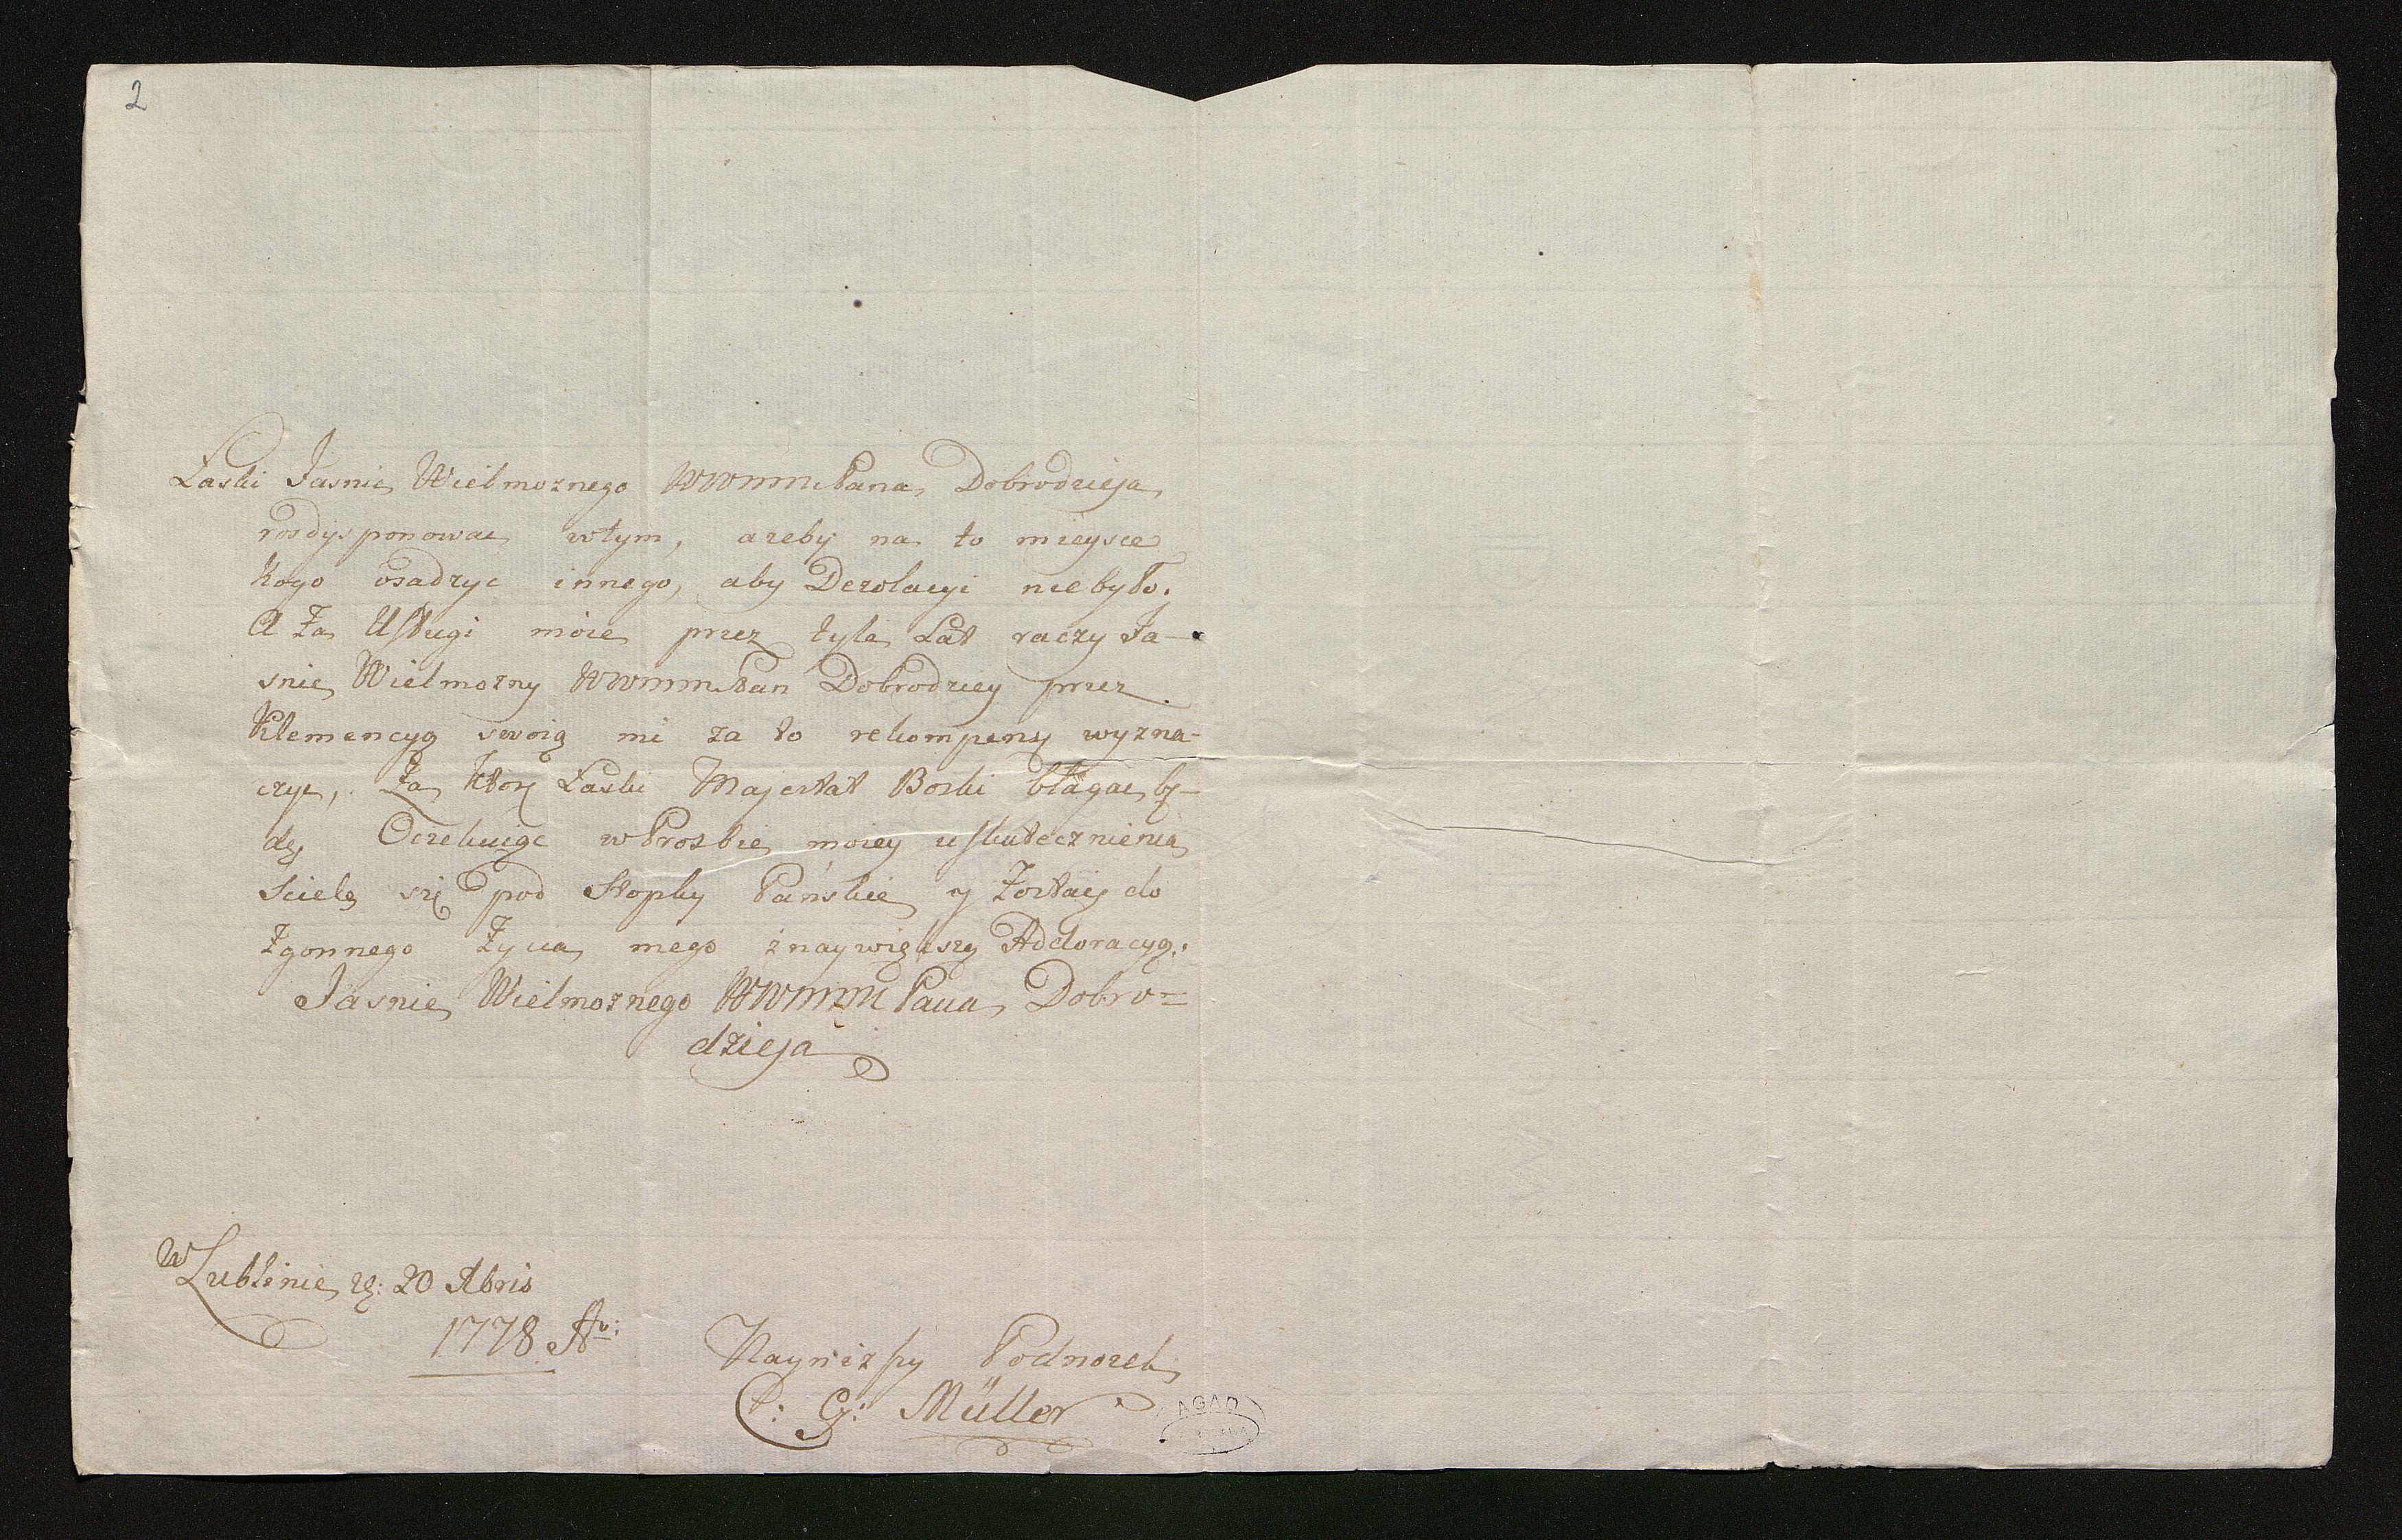 2
Łaski Jasnie Wielmoznego WWMM Pana Dobrodzieja
rosdysponowac wtym, azeby na to mieysce
kogo osadzyc innego, aby Dezolacyi niebyło.
A Za Usługi moie przez tyle Lat raczy Ja-
snie Wielmozny WWMM Pan Dobrodziey przez
Klemencyą swoią mi za to rekompensy wyzna-
czyc, Za Ktorą Łaski Majestat Boski błagac bę-
dę Oczekuiąc wProsbie moiey uskutecznienia
Scielę się pod Stopky Pańskie y Zostaię do
Zgonnego Zycia mego znaywiększą Addoracyą.
Jasnie Wielmoznego WWMM Pana Dobro=
dzieja
W Lublinie 20 Abris
1778 Ao:
Nayniższy Podnozek
C: G: Müller
AGAD